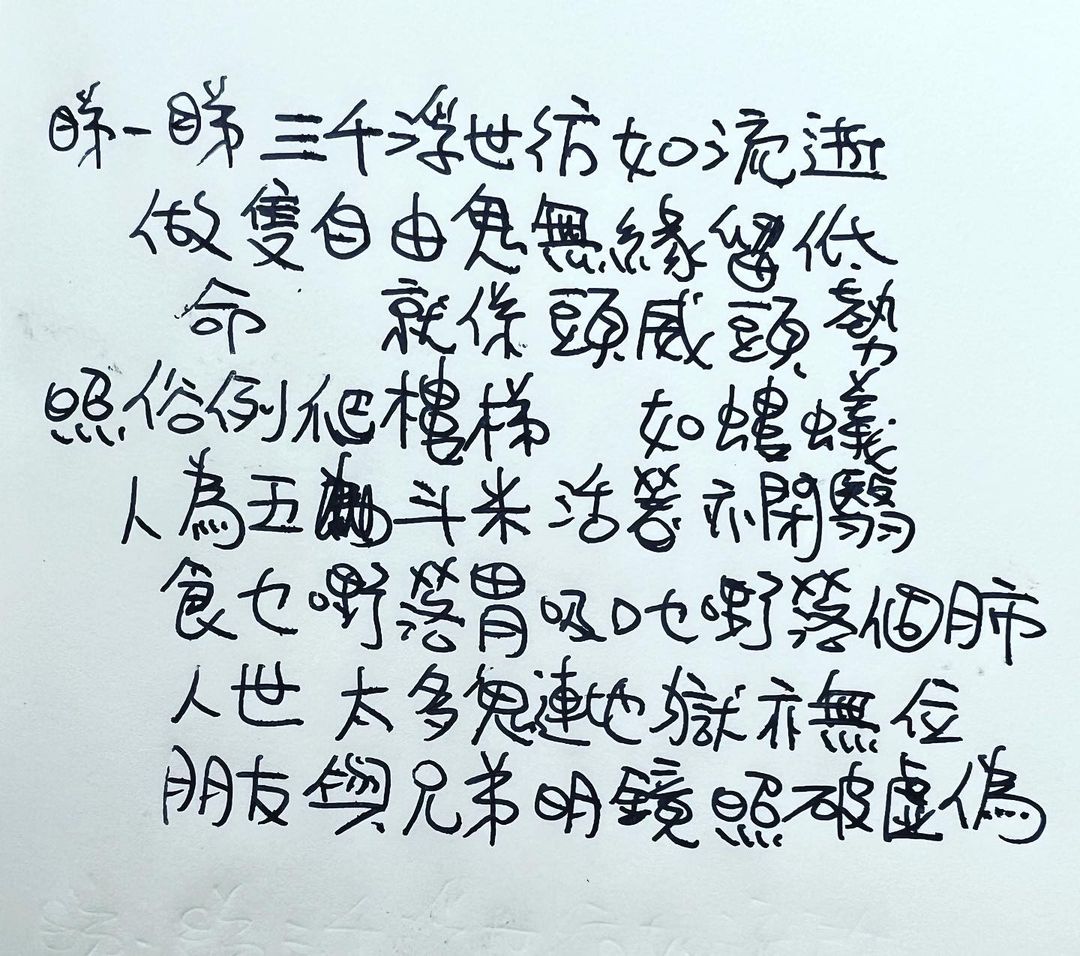 睇一睇三千浮世彷如流逝
做隻自由鬼無緣留低
命 就係頭威頭勢
照俗例爬樓梯 如螻蟻
人為五斗米活著亦閉翳
食乜嘢落胃吸口乜嘢落個肺
人世太多鬼連地獄亦無位
朋友與兄弟明鏡照破虛偽